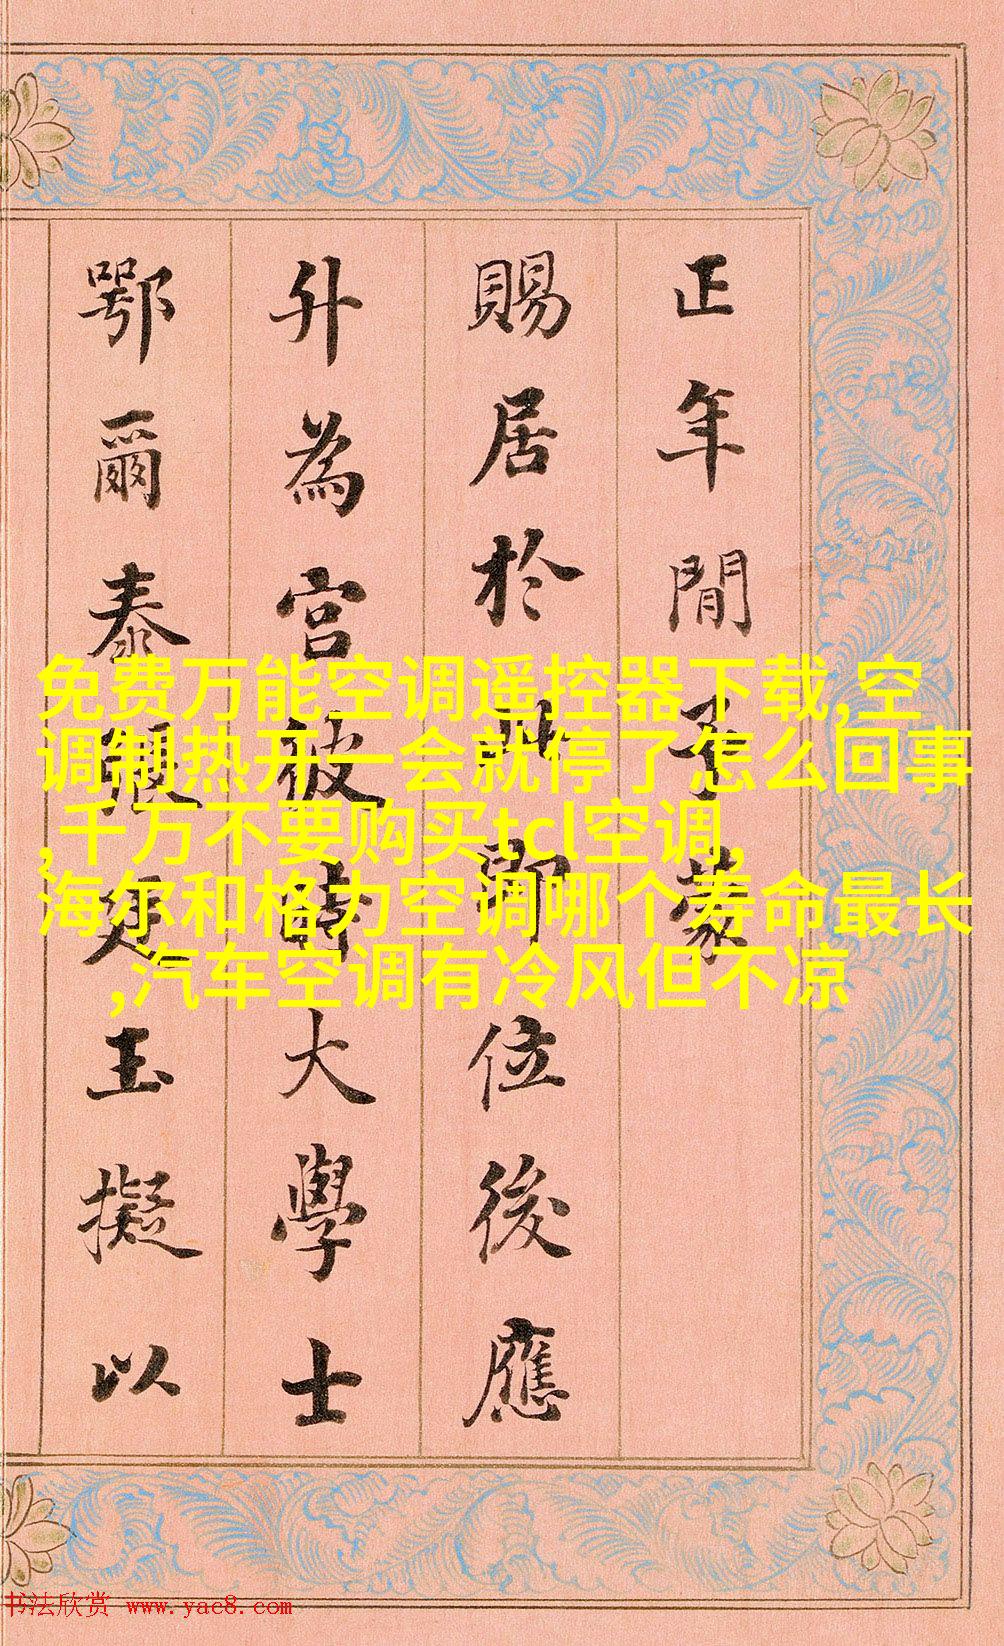 正年間予蒙
賜居於此即位後應
升為宮彼時大學士
鄂爾泰張廷玉擬以
免费万能空调遥控器下载,空
调制热开一会就停了怎么回事
,千万不要购买tcl空调,
海尔和格力空调哪个寿命最长
,汽车空调有冷风但不凉
书法欣赏 www.yac8.com